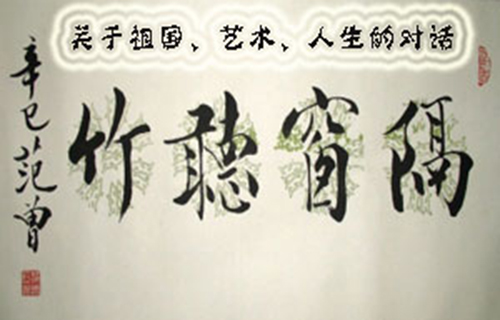 关于祖国、艺术、人生的对话
隔窗聽竹
辛巳范曾